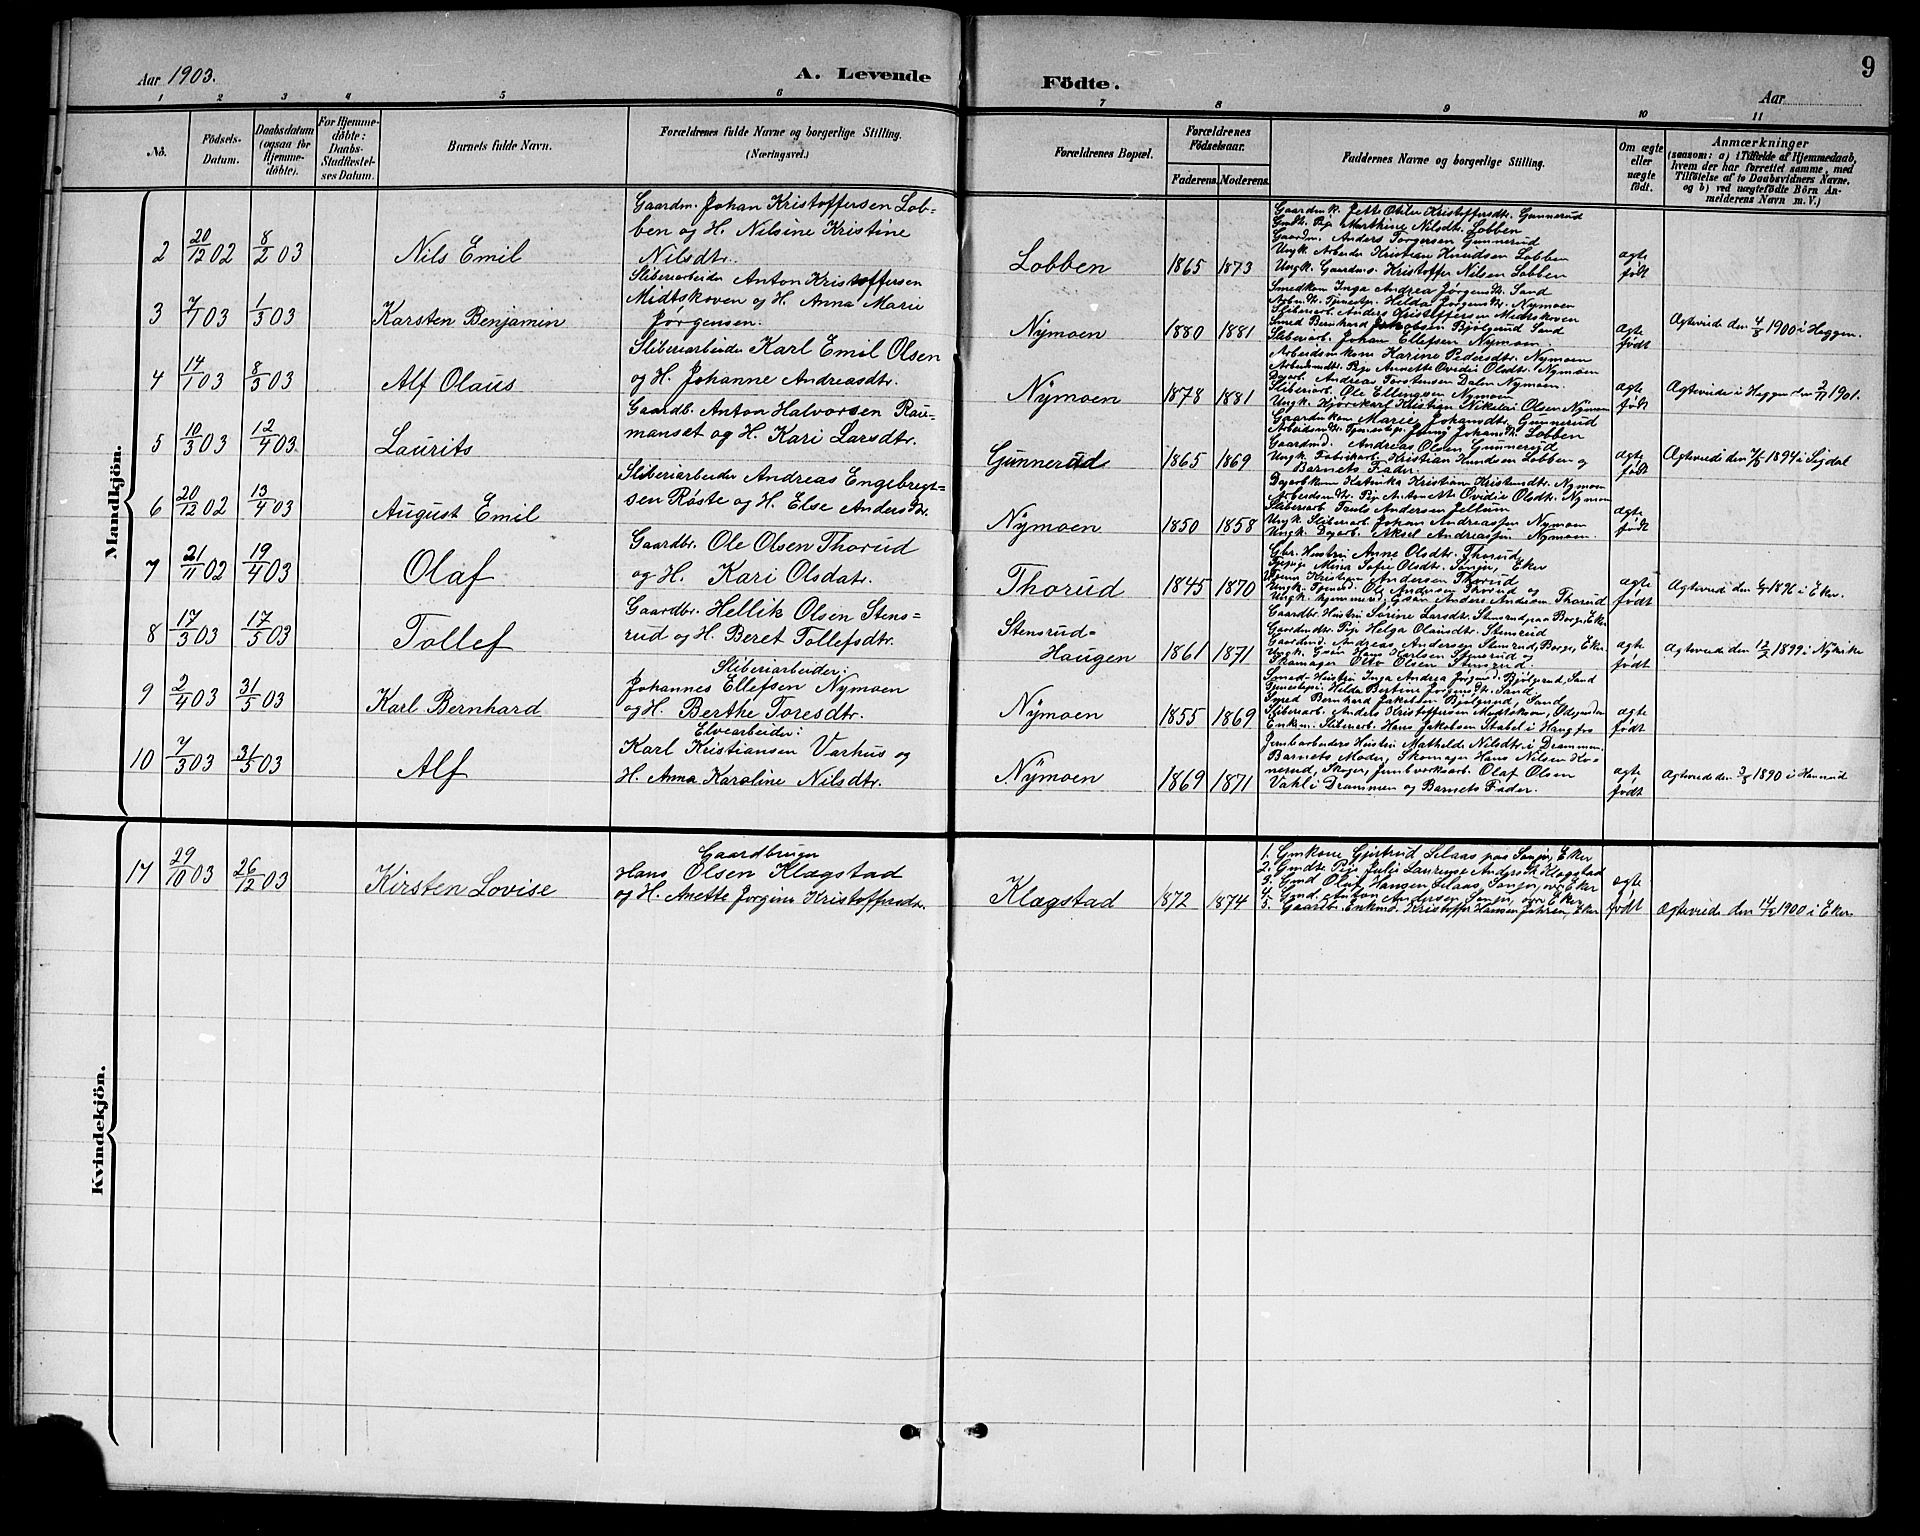 Aar 1903.
A. Levende
Födte.
Aar
9
1 2 3 4 5 6 7 8 9 10 11
No.
Födsels-
Datum.
Daabsdatum
(ogsaa for
Hjemme-
døbte).
For Hjemme-
døbte:
Daabs-
Stadfæstel-
ses Datum.
Barnets fulde Navn.
Forældrenes fulde Navne og borgerlige Stilling.
(Næringsvei.)
Forældrenes Bopæl.
Forældrenes
Födselsaar.
Faderens. Moderens.
Faddernes Navne og borgerlige Stilling.
Om ægte
eller
uægte
født.
Anmærkninger
(saasom: a) i Tilfælde af Hjemmedaab,
hvem der har forrettet samme, med
Tilföielse af to Daabsvidners Navne,
og b) ved uægtefödte Börn An-
melderens Navn m. V.)
Mandkjön.
2 20/12 02 8/2 03 Nils Emil
Gaardm. Johan Kristoffersen Lob-
ben og H. Nilsine Kristine
Nilsdtr.
Lobben 1865 1873
Gaardmk. Jette Otilie Kristoffersdtr. Gunnerud
Pige Marthine Nilsdtr. Lobben
Gaardm. Anders Torgersen Gunnerud
Ungk. Arbeider Kristian Knudsen Lobben
Ungk. Gaardm.s. Kristoffer Nilsen Lobben
ægte
født
3 7/1 03 1/3 03 Karsten Benjamin
Sliberiarbeider Anton Kristoffersen
Midtskoven og H. Anna Marie
Jørgensen.
Nymoen 1880 1881
Smedkom Inga Andrea Jørgensdtr. Sand
Helda Jørgensdtr. Nymoen
Sliberiarb. Anders Kristoffersen Midtskoven
Smed Bernhard Jakobsen Bjølgerud Sand
Sliberiarb. Johan Ellefsen Nymoen.
ægte
født
Ægteviede den 4/8 1900 i Heggen.
4 14/1 03 8/3 03 Alf Olaus
Sliberiarbeider Karl Emil Olsen
og H. Johanne Andreasdtr.
Nymoen 1878 1881
Arbeidsmkone Karine Pedersdtr. Nymoen
Arbeidsmdtr. Pige Annette Ovidie Olsdtr. Nymoen
Dagarb. Andreas Torstensen Dalen Nymoen.
Sliberiarb. Ole Ellingsen Nymoen
Ungk. Kjørekarl Kristian Nikolai Olsen Nymoen
ægte
født
Ægteviede i Heggen den 2/11 1901.
5 10/3 03 12/4 03 Laurits
Gaardb. Anton Halvorsen Rau-
manset og H. Kari Larsdtr.
Gunnerud 1865 1869
Gaardmkom Marie Johansdtr. Gunnerud
Jenny Johansdtr. Lobben
Gaardmd. Andreas Olsen Gunnerud
Ungk. Fabrikarb. Kristian Knudsen Lobben og
Barnets Fader.
ægte
født
Ægteviede 1894 i Sigdal
6 20/12 02 13/4 03 August Emil
Sliberiarbeider Andreas Engebregt-
sen Røste og H. Else Andersdtr.
Nymoen 1850 1858
Dagarbkom Katrinka Kristian Kristiansdtr. Nymoen
Arbeidsmdtr. Pige Antonette Ovidie Olsdtr. Nymoen
Sliberiarb. Truls Andersen Jellum
Ungk. Sliberiarb. Johan Andreassen Nymoen
Ungk. Dagarb. Aksel Andreassen Nymoen.
ægte
født
7 21/11 02 19/4 03 Olaf
Gaardbr. Ole Olsen Thorud
og H. Kari Olsdatr.
Thorud 1845 1870
Gbr. Hustru Anne Olsdtr. Thorud,
Mina Sofie Olsdtr. Eker
Kristian Andersen Thorud
Ungk. Ole Andersen Thorud og
Ungk. Anders Andersen Thorud
ægte
født
Ægteviede den 1896 i Eker.
8 17/3 03 17/5 03 Tollef
Gaardbr. Hellik Olsen Stens-
rud og H. Beret Tollefsdtr.
Stensrud-
Haugen 1861 1871
Gaardbr. Hustru Sørine Larsdtr. Stensrud paa Borge, Eker
Gaardmdtr. Pige Helga Olausdtr. Stensrud
Gaardmd. Andreas Andersen Stensrud, Borge, Eker
Ungk. Hans Karlsen Stensrud og
Skomager Otto Olsen Stensrud.
ægte
født
Ægteviede den 12/2 1899 i Nykirke
9 2/4 03 31/5 03 Karl Bernhard
Sliberiarbeider:
Johannes Ellefsen Nymoen
og H. Berthe Toresdtr.
Nymoen 1855 1869
Smed-Hustru Inga Andrea Jørgensd. Bjølgerud, Sand
Tjenestepige Hilda Bertine Jørgensdtr. Sand
Smed Bernhard Jakobsen Bjølgerud, Sand
Sliberiarb. Anders Kristoffersen Midtskov,
Enkem. Sliberiarb. Hans Jakobsen Stabel i Haugfos
ægte
født
10 7/3 03 31/5 03 Alf
Elvearbeider:
Karl Kristiansen Varhus og
H. Anna Karoline Nilsdtr.
Nymoen 1869 1871
Jernbarbeiders Hustru Mathilde Nilsdtr. i Drammen
Barnets Moder, Skomager Hans Nilsen Ko-
nerud, Skoger, Jernbverksarb. Olaf Olsen
Vahl i Drammen og Barnets Fader.
ægte
født
Ægteviede den 3/8 1890 i
Kvindekjön.
17 29/10 03 26/12 03 Kirsten Lovise
Gaardbruger
Hans Olsen Klægstad
og H. Anette Jørgine Kristoffersdtr.
Klægstad 1872 1874
1. Gmkone Gjertrud Selaas paa Eker
2. Gmdtr. Pige Julie Laurense Andersdtr. Klagstad
3. Gmd Oluf Hansen Selaas, Eker
4. Gmd. Anton Andersen Eker
5. Gaardb. Enkmd. Kristoffer Hansen Eker
ægte
født
Ægteviede den 14/2 1900 i Eker